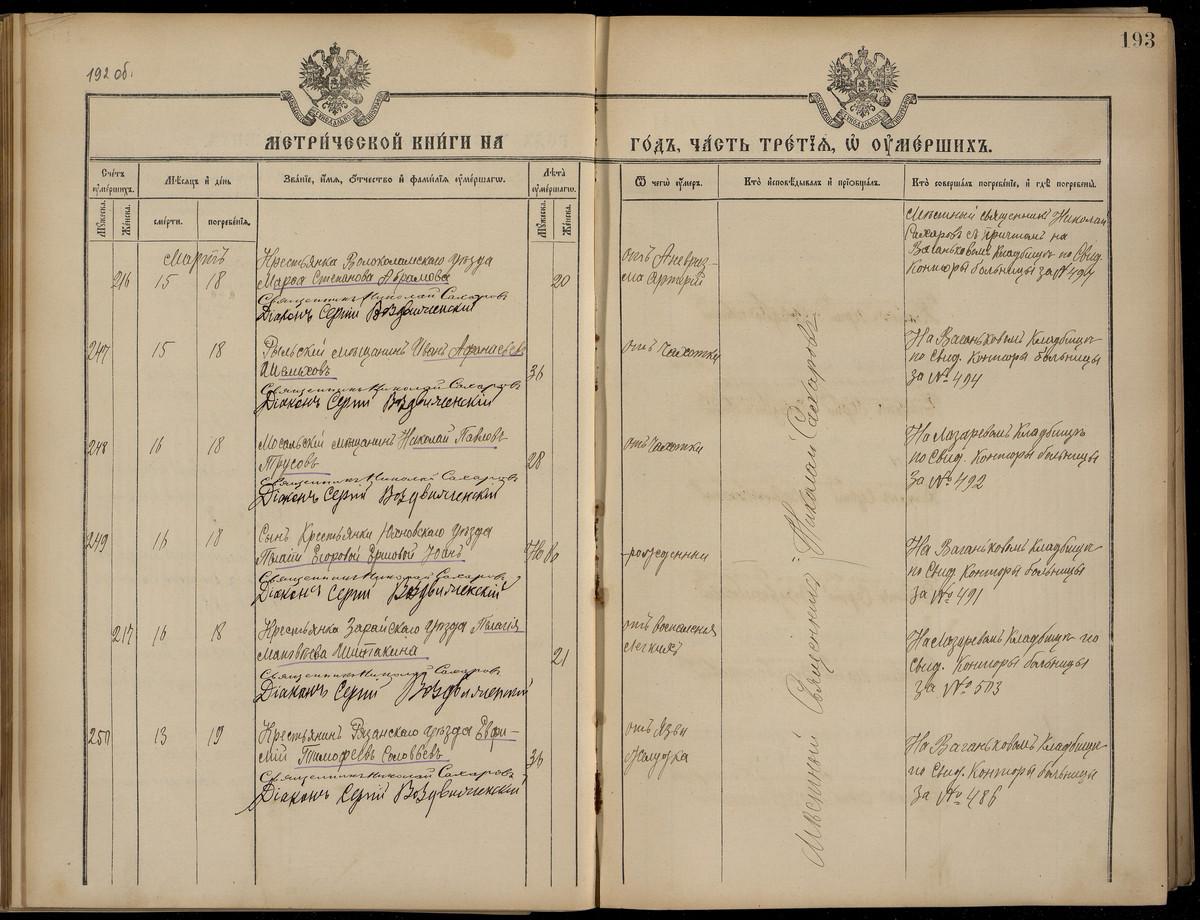 192 об.
193
МЕТРИ́ЧЕСКОЙ КНИ́ГИ НА
ГО́ДЪ, ЧА́СТЬ ТРЕ́ТІѦ, Ѡ҆ ОУ҆МЕ́РШИХЪ.
Счетъ оу҆ме́ршихъ.
Мѣсяцъ и день
Зва́ніе, и҆́мѧ, о҆́тчество и҆ фами́лїѧ оу҆ме́ршагѡ.
Лѣта оу҆ме́ршагѡ.
Ѿ чегѡ̀ оу҆́меръ.
Кто̀ и҆сповѣ́дывалъ и҆ прїѡбща́лъ.
Кто̀ соверша́лъ погребе́нїе, и҆ гдѣ̀ погребены̀.
Мꙋжеска.
Женска.
сме́рти.
погребе́нїѧ.
Мꙋжеска.
Женска.
Мартъ
216 15 18
Крестьянка Волоколамскаго уѣзда
Марѳа Степанова Абрамова
Священникъ Николай Сахаровъ
Діаконъ Сергій Воздвиженскій
20
отъ Аневриз-
ма артерій
Мѣстный священникъ Николай
Сахаровъ съ причтомъ на
Ваганьковомъ Кладбищѣ по Свид.
Конторы больницы за № 497
247 15 18
Рыльскій мѣщанинъ Иванъ Афанасьевъ
Шелыховъ
Священникъ Николай Сахаровъ
Діаконъ Сергій Воздвиженскій
36
отъ Чахотки
На Ваганьковомъ Кладбищѣ
по Свид. Конторы больницы
за № 494
248 16 18
Мосальскій мѣщанинъ Николай Павловъ
Трусовъ
Священникъ Николай Сахаровъ
Діаконъ Сергій Воздвиженскій
28
отъ Чахотки
На Лазаревомъ Кладбищѣ
по Свид. Конторы больницы
за № 492
249 16 18
Сынъ Крестьянки Юхновскаго уѣзда
Пелагіи Егоровой Ершовой Іоанъ
Священникъ Николай Сахаровъ
Діаконъ Сергій Воздвиженскій
Ново
-рожденный
На Ваганьковомъ Кладбищѣ
по Свид. Конторы больницы
за № 491
217 16 18
Крестьянка Зарайскаго уѣзда Пелагія
Матвѣева Шитакина
Священникъ Николай Сахаровъ
Діаконъ Сергій Воздвиженскій
21
отъ воспаленія
легкихъ
На Лазаревомъ Кладбищѣ по
Свид. Конторы больницы
за № 503
250 13 19
Крестьянинъ Рязанскаго уѣзда Евфи-
мій Тимофеевъ Соловьевъ
Священникъ Николай Сахаровъ
Діаконъ Сергій Воздвиженскій
36
отъ Язвы
желудка
На Ваганьковомъ Кладбищѣ
по Свид. Конторы больницы
за № 486
Мѣстный Священникъ Николай Сахаровъ